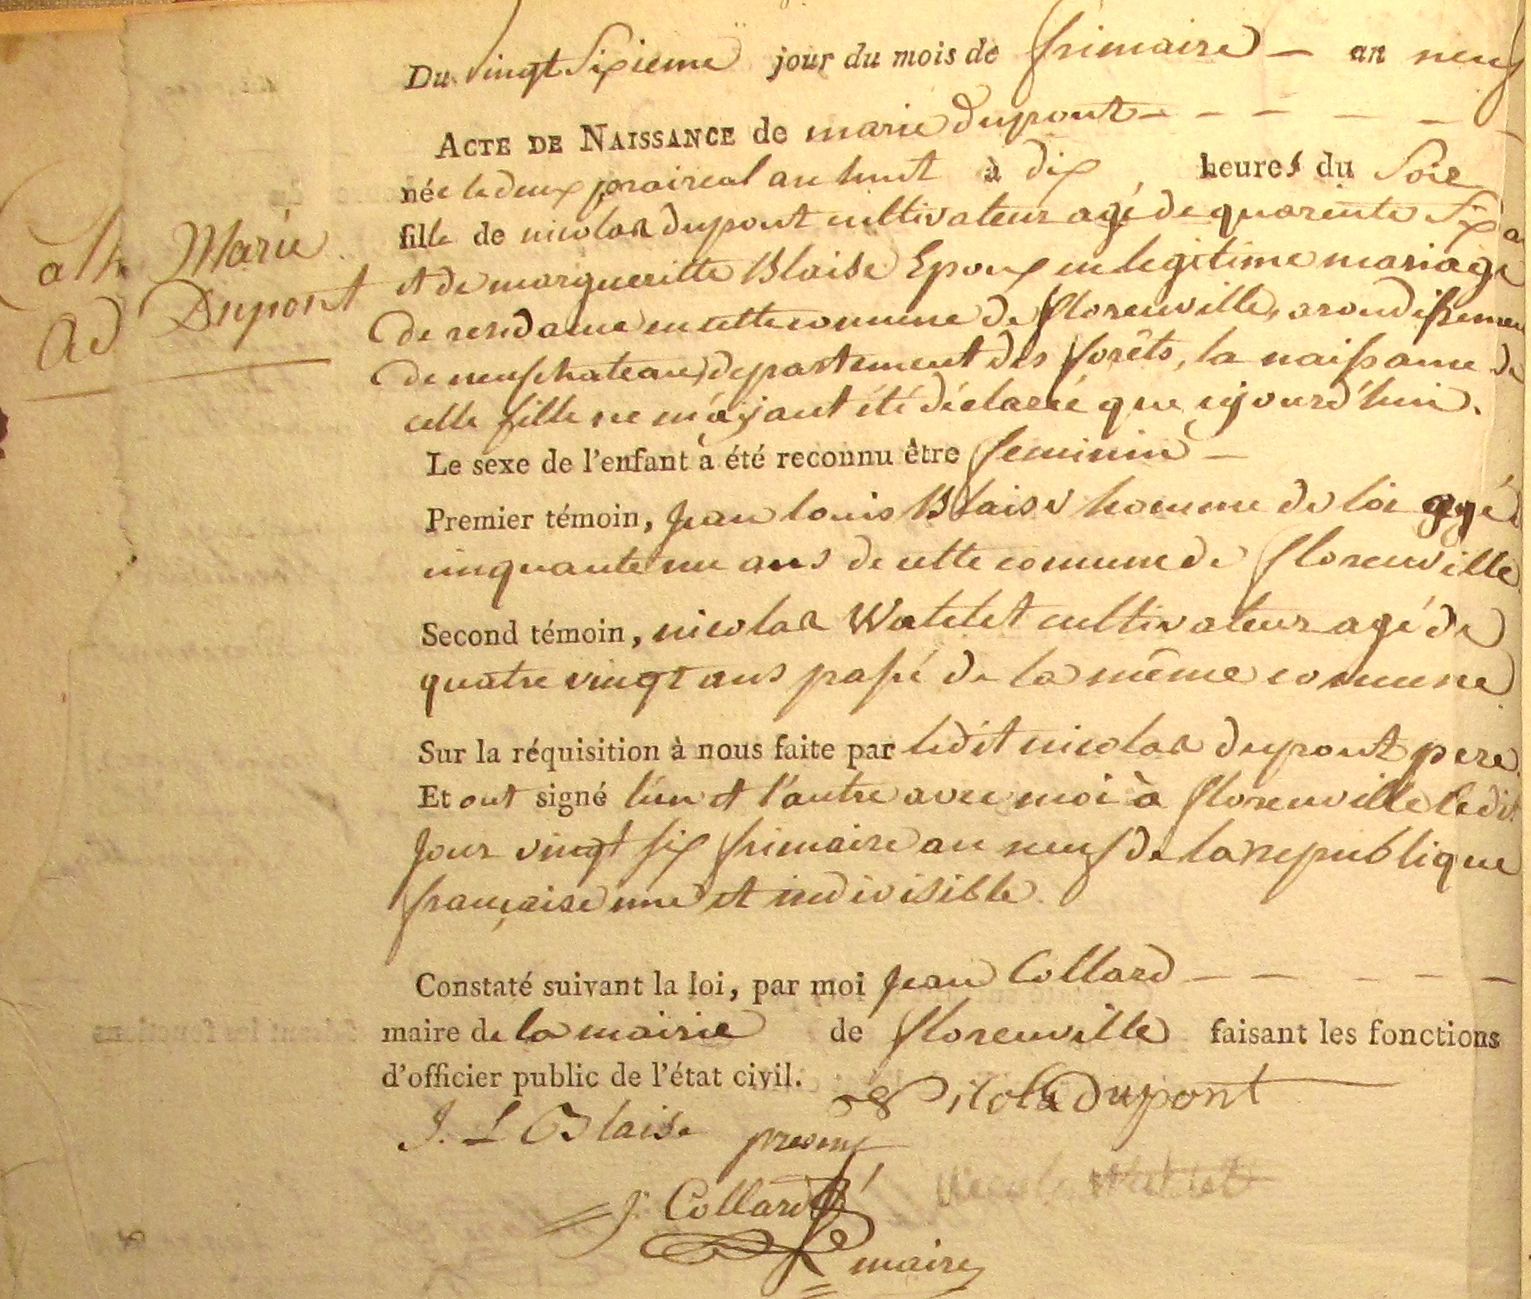 Du vingt Sixieme jour du mois de frimaire — an neuf
ACTE DE NAISSANCE de marie dupont - - - - - -
née le deux prairial an huit à dix heures du Soir
fille de nicolas dupont cultivateur agé de quarente Six a
et de margueritte Blaise Epoux en legitime mariage
de residance en cette comune de florenville, arondissement
de neufchateau, departement des forêts, la naissance de
celle fille ne m'ayant été déclareé que ajourd'hui.
Le sexe de l'enfant à été reconnu être feminin —
Premier témoin, jean louis Blaise homme de loi agé
cinquante un ans de cette comune de florenville
Second témoin, nicolas Watelet cultivateur agé de
quatre vingt ans passé de la même comune
Sur la réquisition à nous faite par ledit nicolas dupont pere
Et ont signé l'un et l'autre avec moi à florenville ledit
jour vingt six frimaire an neuf de la republique
française une et indivisible.
Constaté suivant la loi, par moi jean Collard - - - - -
maire de la mairie de florenville faisant les fonctions
d'officier public de l'état civil.
Marie
Dupont
Nicola Dupont
J. L Blaise present
Nicola Watelet
J. Collard
maire